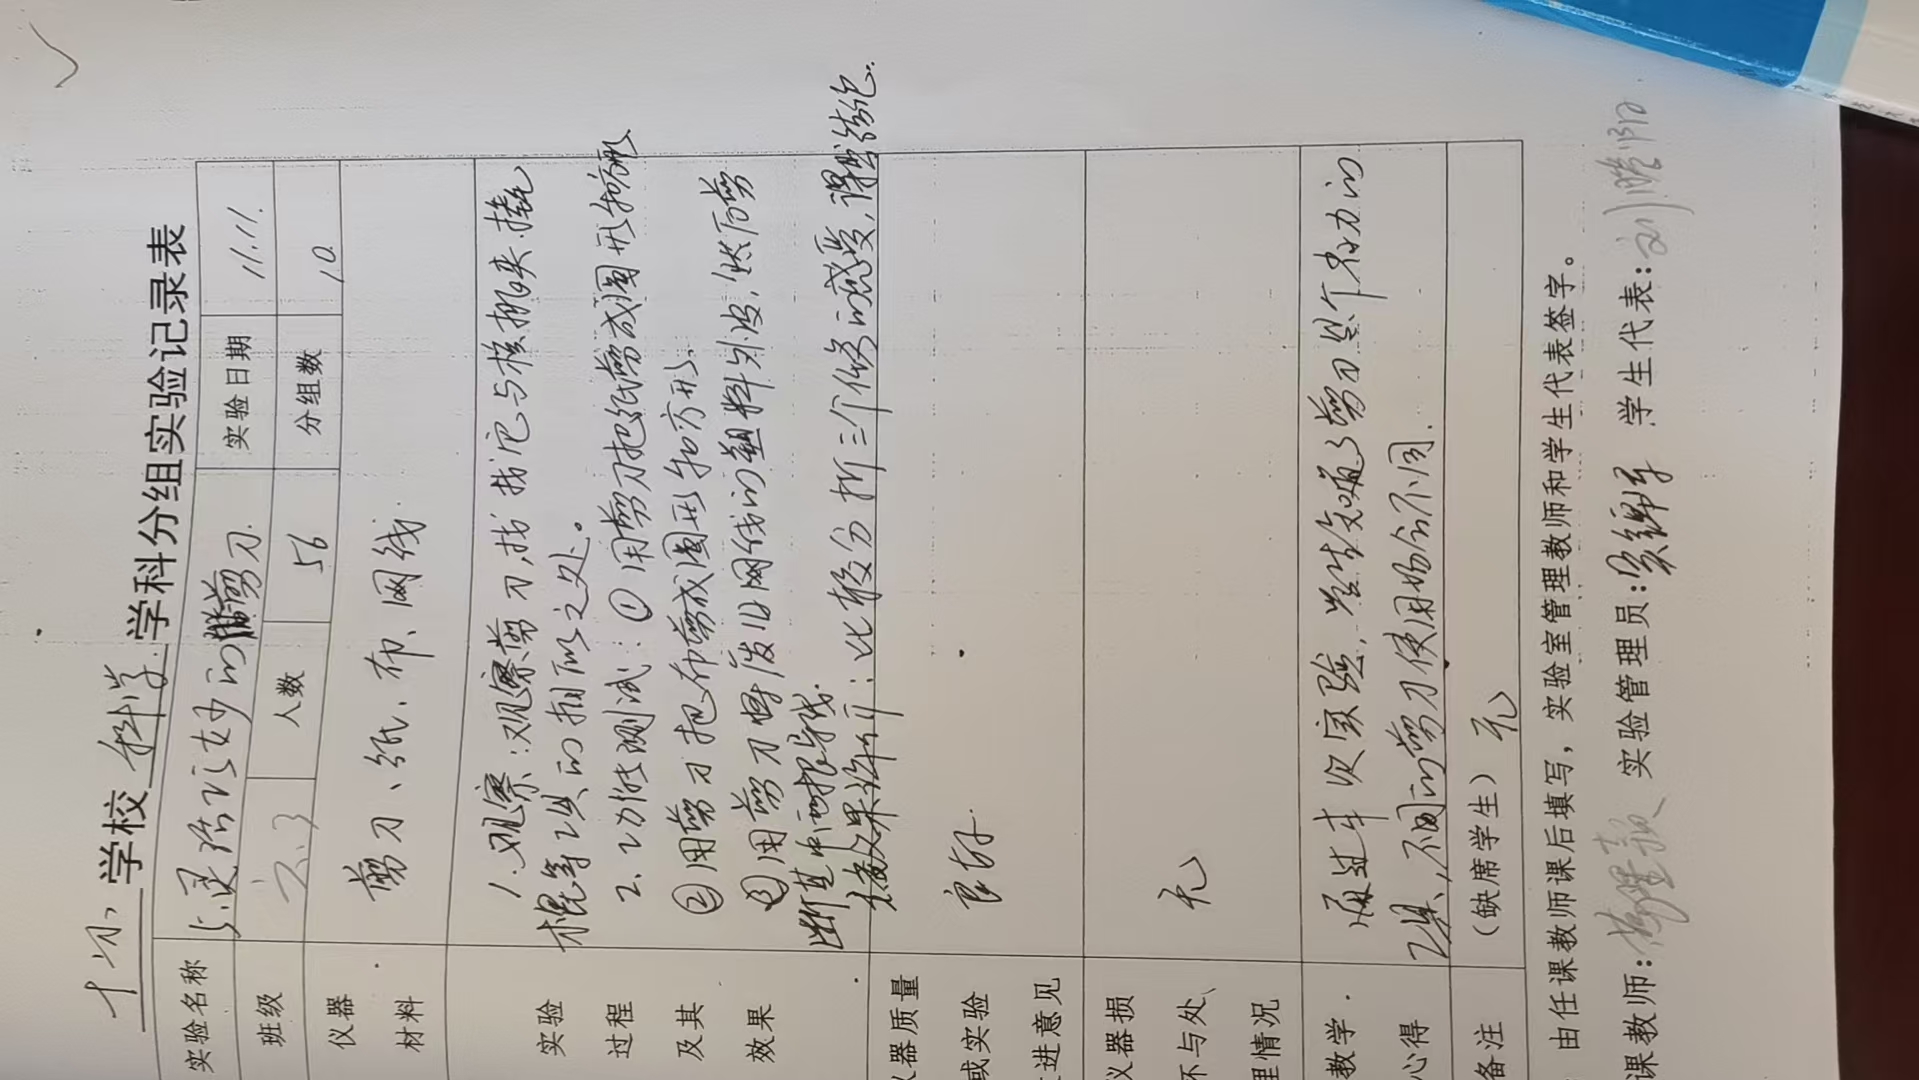 十小 学校 科学 学科分组实验记录表
实验名称 5.灵活巧妙的剪刀 实验日期 11.11.
班级 六.3 人数 56 分组数 10
仪器材料 剪刀、纸、布、网线.
实验过程及其效果
1.观察:观察剪刀,找找它与核桃夹.撬
棍等工具的相似之处。
2.功能测试:①用剪刀把纸剪成圆形和方形
②用剪刀把布剪成圆形和方形.
③用剪刀剪废旧网线的塑料外皮,然后剪
断其中一根导线.
:比较分析三个任务的感受,得出结论.
器质量或实验进意见 良好.
仪器损坏与处理情况 无
教学心得 通过本次实验,学生知道了剪刀是个省力的
工具,不同的剪刀使用场合不同.
备注 (缺席学生) 无
由任课教师课后填写,实验室管理教师和学生代表签字。
课教师: 实验管理员: 学生代表: